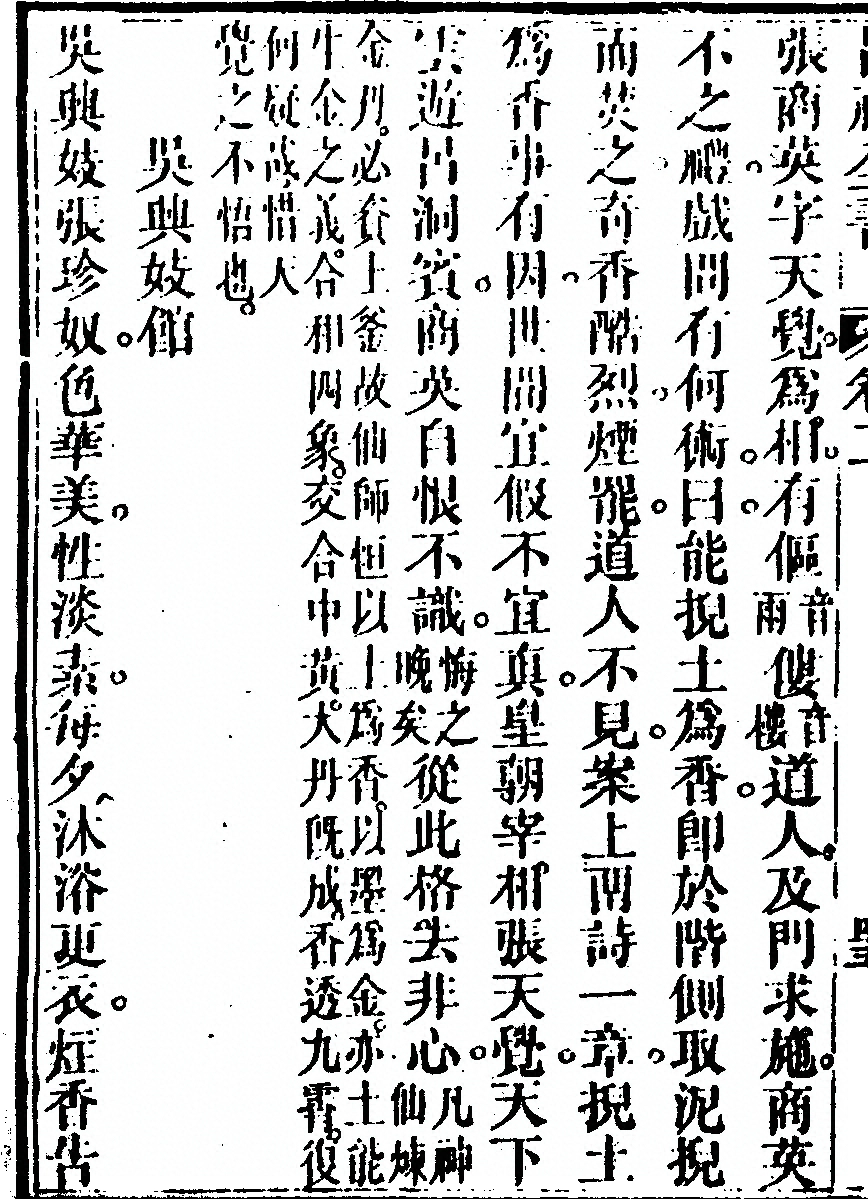 張商英字天覺爲相有傴音雨僂音樓道人及門求施商英
不之禮戲問有何術曰能揑土爲香卽於階側取泥揑
而焚之奇香酷烈煙罷道人不見案上留詩一章揑土
爲香事有因世間宜假不宜真皇朝宰相張天覺天下
雲遊呂洞賓商英自恨不識悔之晚矣從此格去非心凡神仙煉
金丹必套上釜故仙師恒以土爲香以墨爲金亦土能
生金之義合和四象交合中黃大丹既成香透九霄復
何疑哉惜人
覺之不悟也
吳興妓館
吳興妓張珍奴色華美性淡素每夕沐浴更衣炷香告